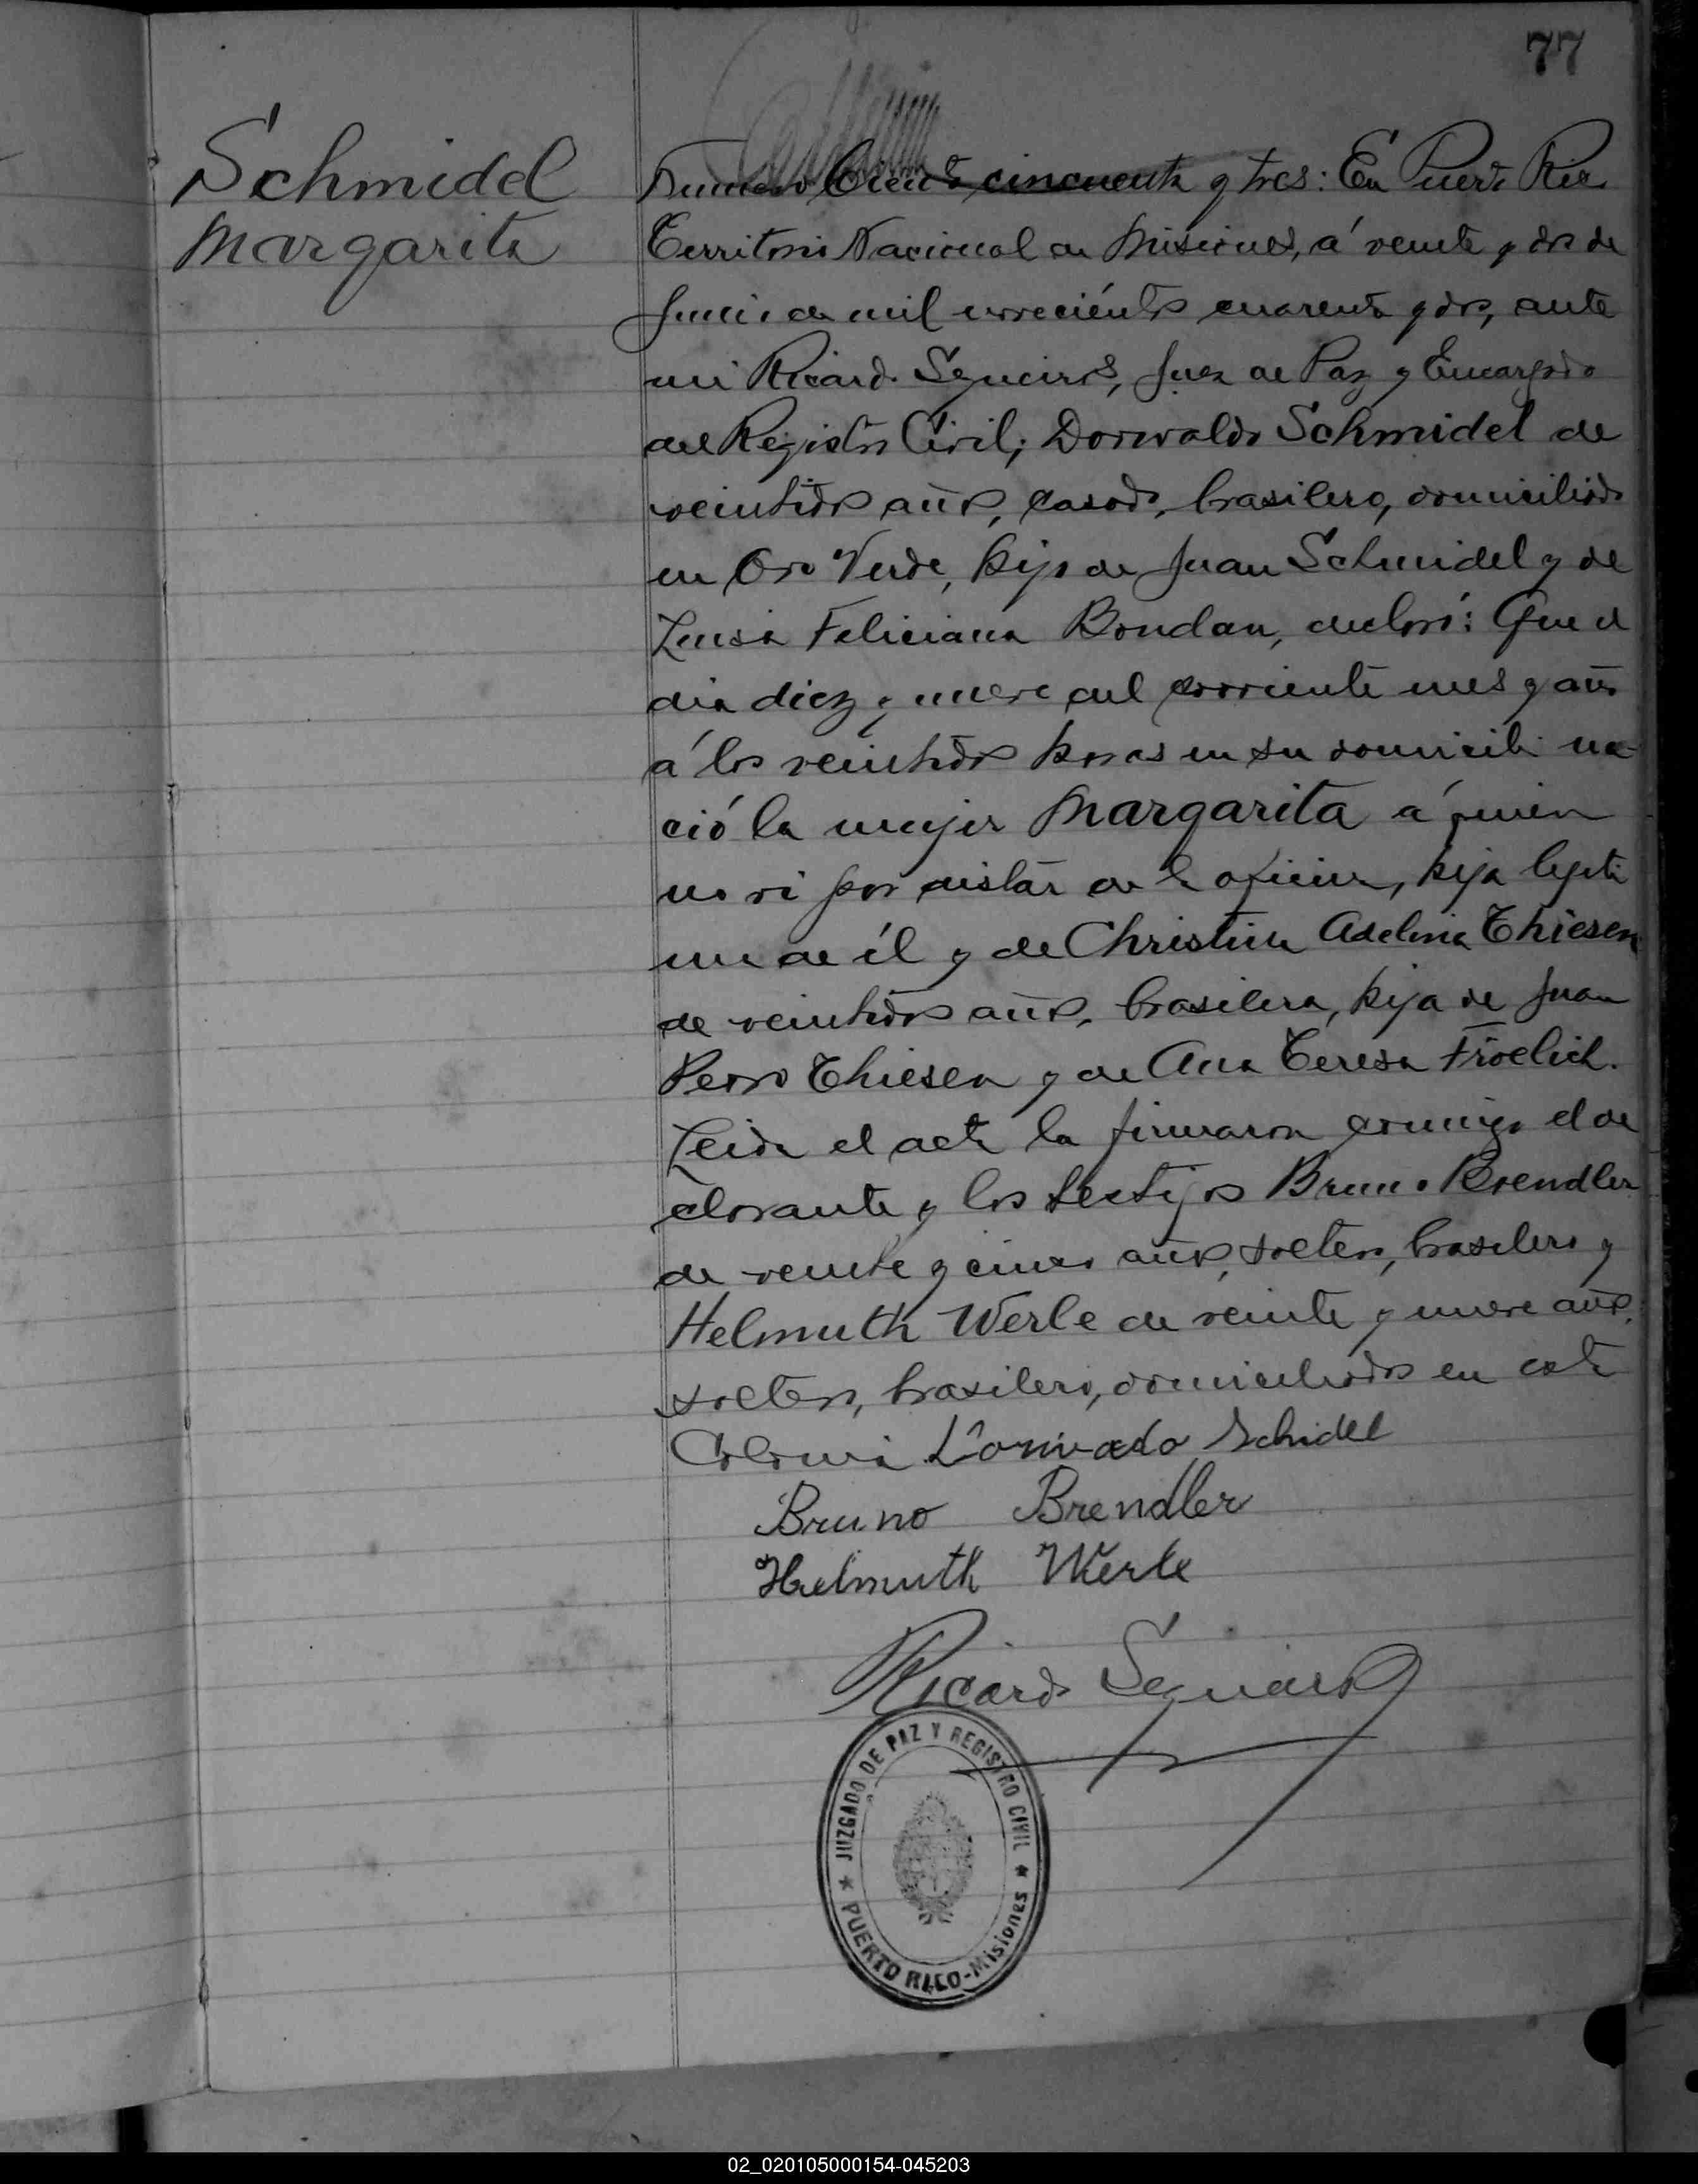 77
Schmidel
Margarita
Numero Ciento cincuenta y tres: En Puerto Rico
Territorio Nacional de Misiones, á veinte y dos de
Junio de mil novecientos cuarenta y dos, ante
mi Ricardo Sequeiros, Juez de Paz y Encargado
del Registro Civil; Dorwaldo Schmidel de
veintidos años, casado, brasilero, domiciliado
en Oro Verde, hijo de Juan Schmidel y de
Luisa Feliciana Bondan, declaró: Que el
dia diez y nueve del corriente mes y año
á las veintidos horas en su domicilio na-
ció la mujer Margarita á quien
no vi por distar de la oficina, hija legiti
ma de él y de Christina Adelina Thiesen
de veintidos años, brasilera, hija de Juan
Pedro Thiesen y de Ana Teresa Froelich.
Leida el acta la firmaron conmigo el de
clarante y los testigos Bruno Brendler
de veinte y cinco años, soltero, brasilero y
Helmuth Werle de veinte y nueve años,
soltero, brasilero, domiciliados en esta
Colonia Dorivaldo Schidel
Bruno Brendler
Helmuth Werle
Ricardo Sequeiros
JUZGADO DE PAZ Y REGISTRO CIVIL
PUERTO RICO-Misiones
02_020105000154-045203